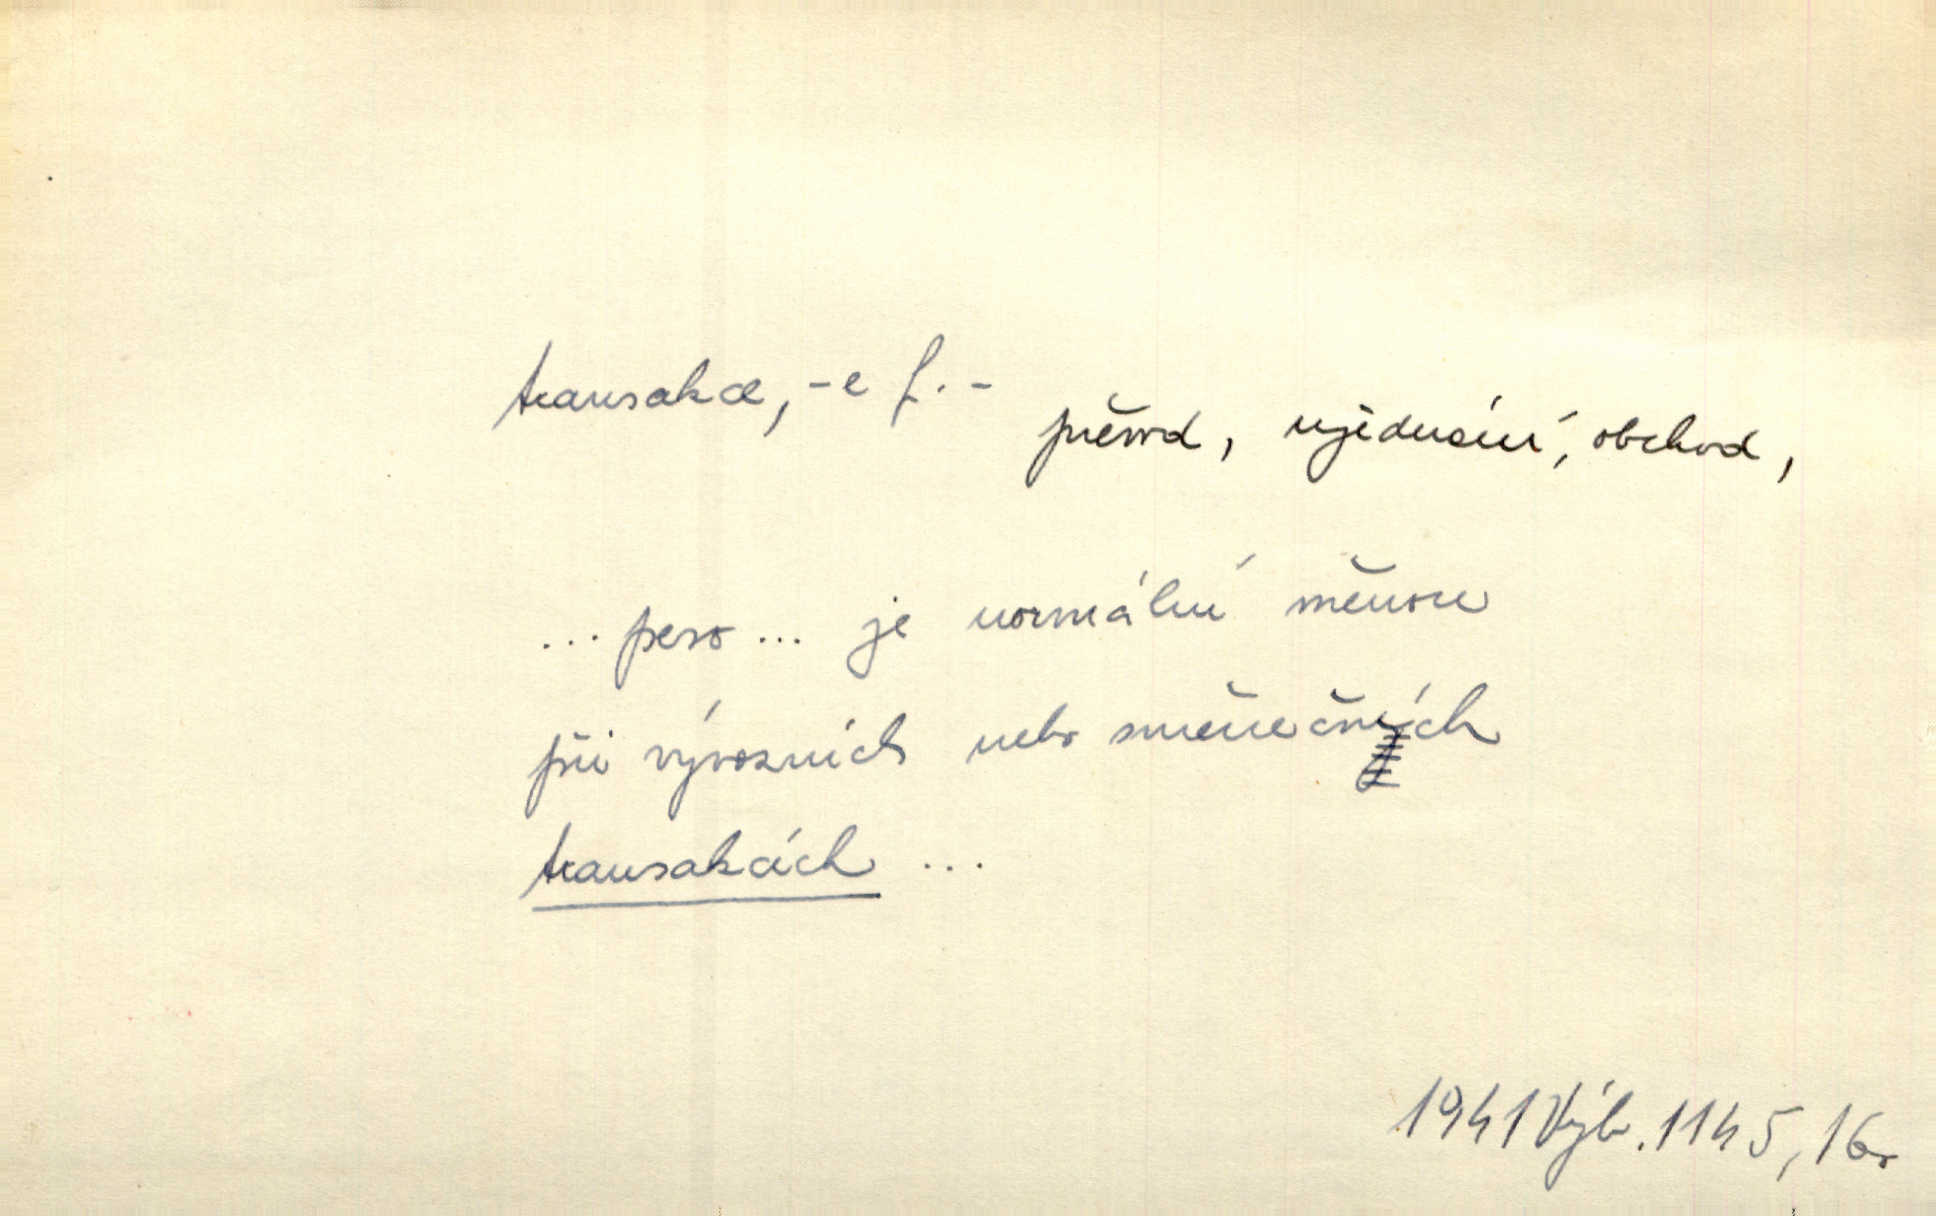 transakce, -e f. - převod, ujednání, obchod,
... peso ... je normální měnou
při vývozních nebo směnečních
transakcích ...
1941 Výb. 1145, 16